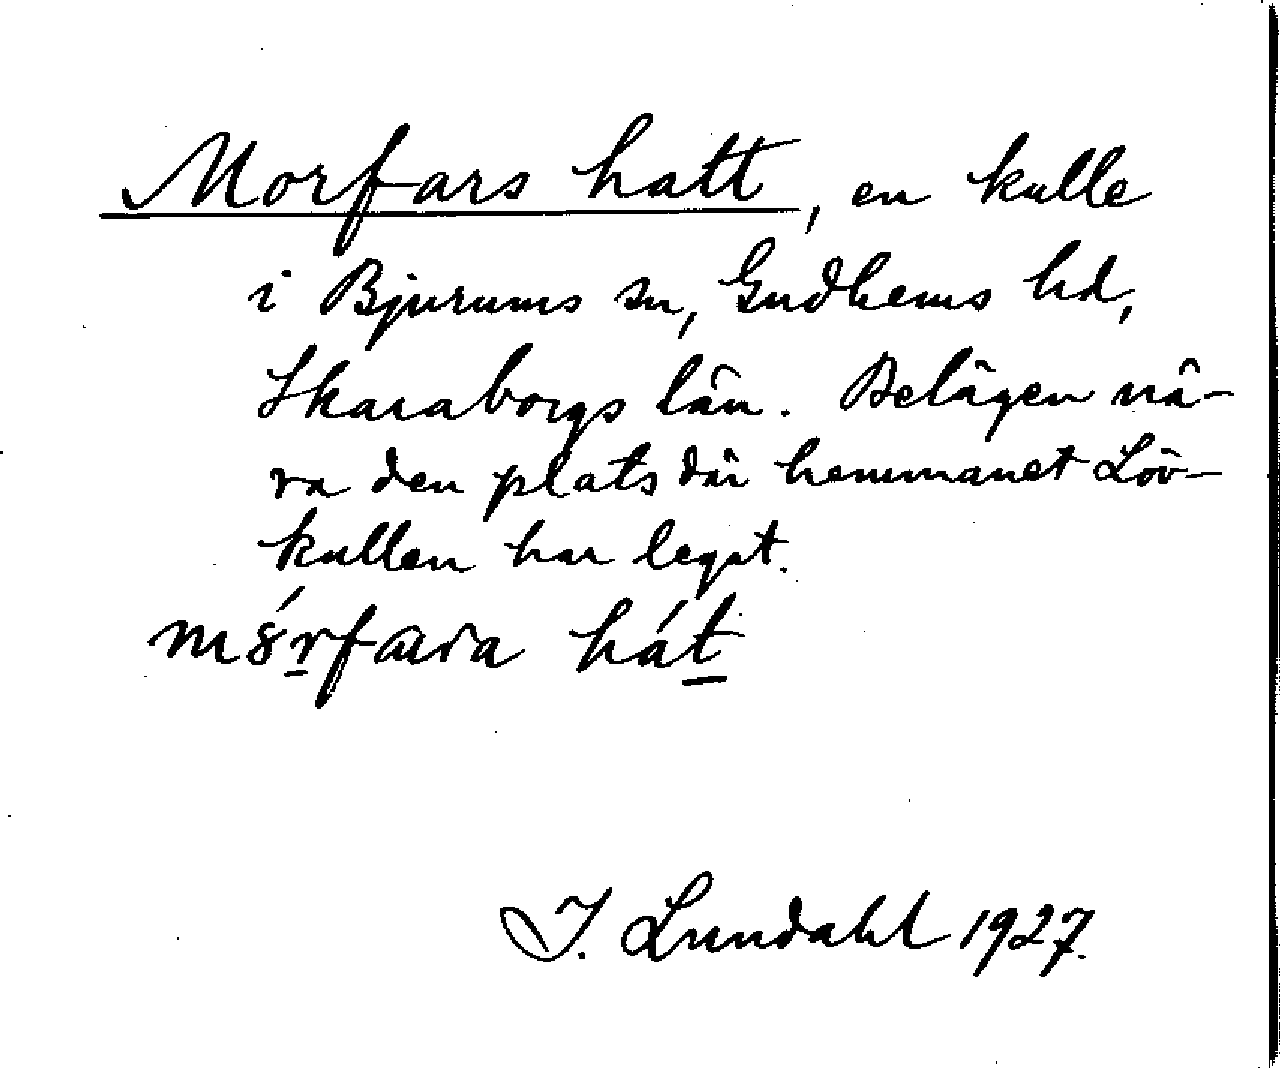 Morfars hatt, en kulle
i Bjurums sn, Gudhems hd,
Skaraborgs län. Belägen nä-
ra den plats där hemmanet Löv-
kullen har legat.
hát
I. Lundahl 1927.